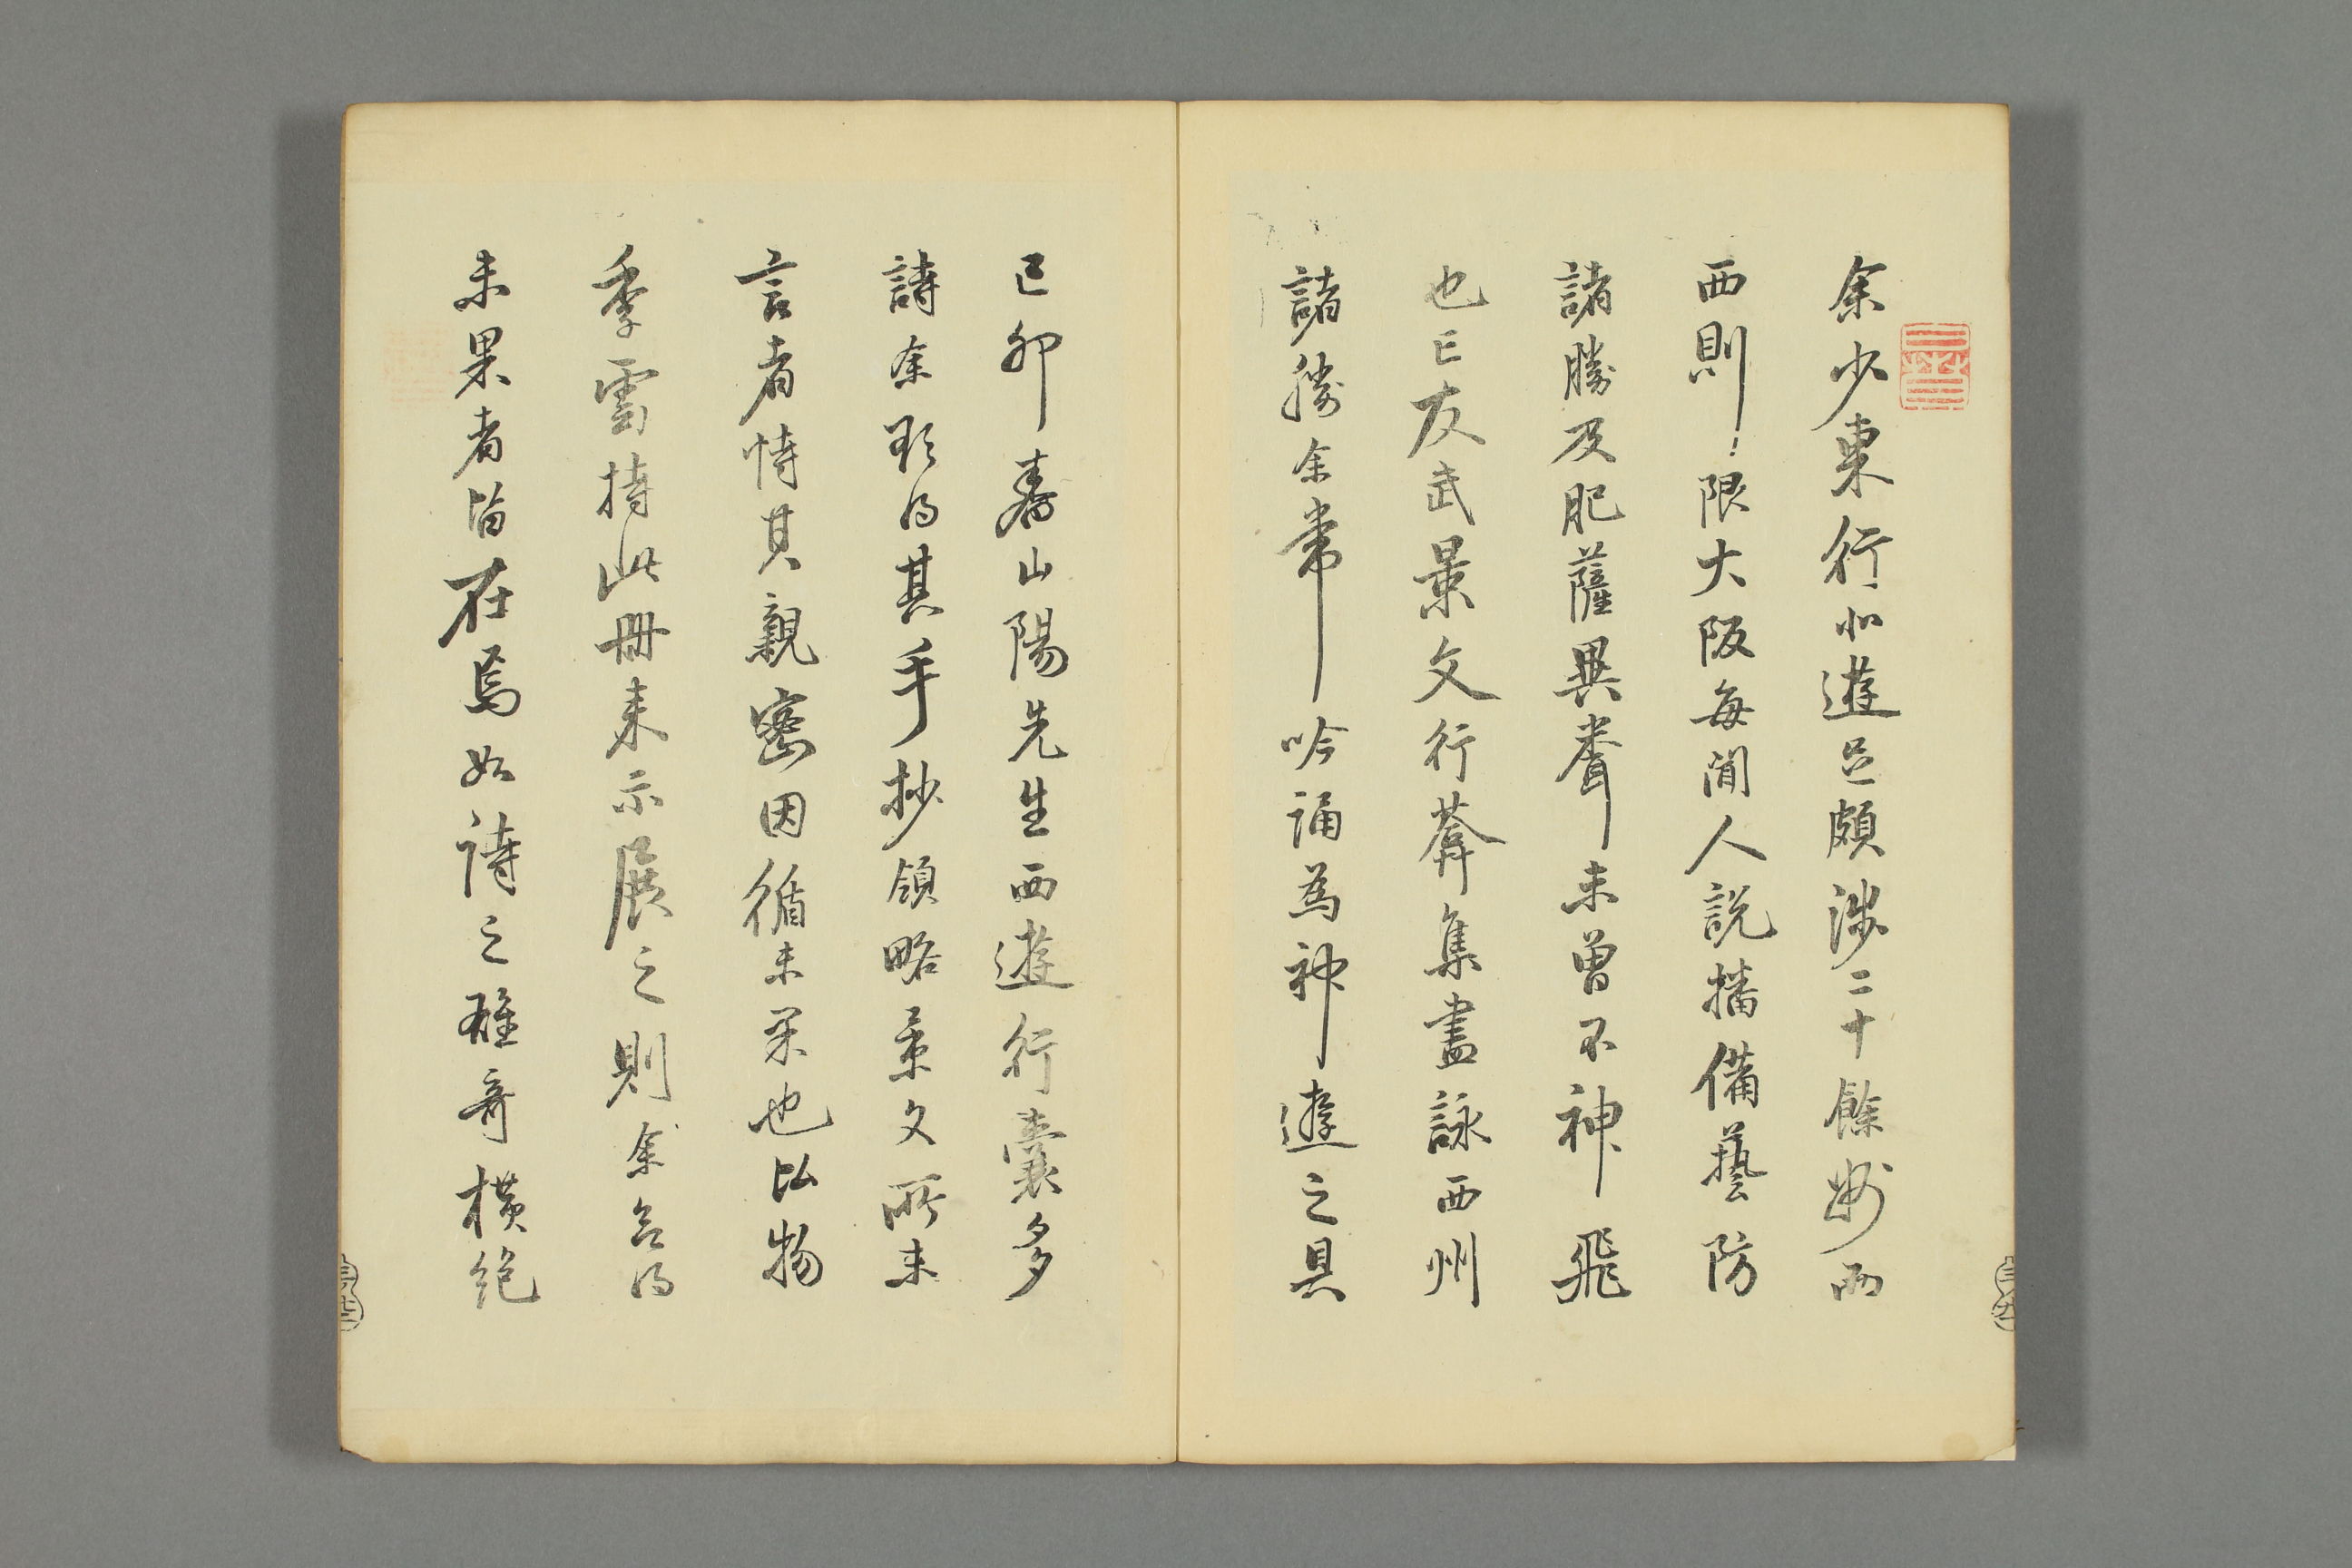 余少東行北遊足頗渉二十餘州而
西則〻限大阪毎聞人説播備藝防
諸勝及肥薩異聲未曽不神飛
也亡友武景文行葊集盡詠西州
諸勝余常吟誦為神遊之具
己卯春山陽先生西遊行嚢多
詩余欲得其手抄領略景文所未
言者恃其親密因循未果也比物
季雪持此冊来示展之則余欲得
未果者皆在焉如詩之雄奇横絶